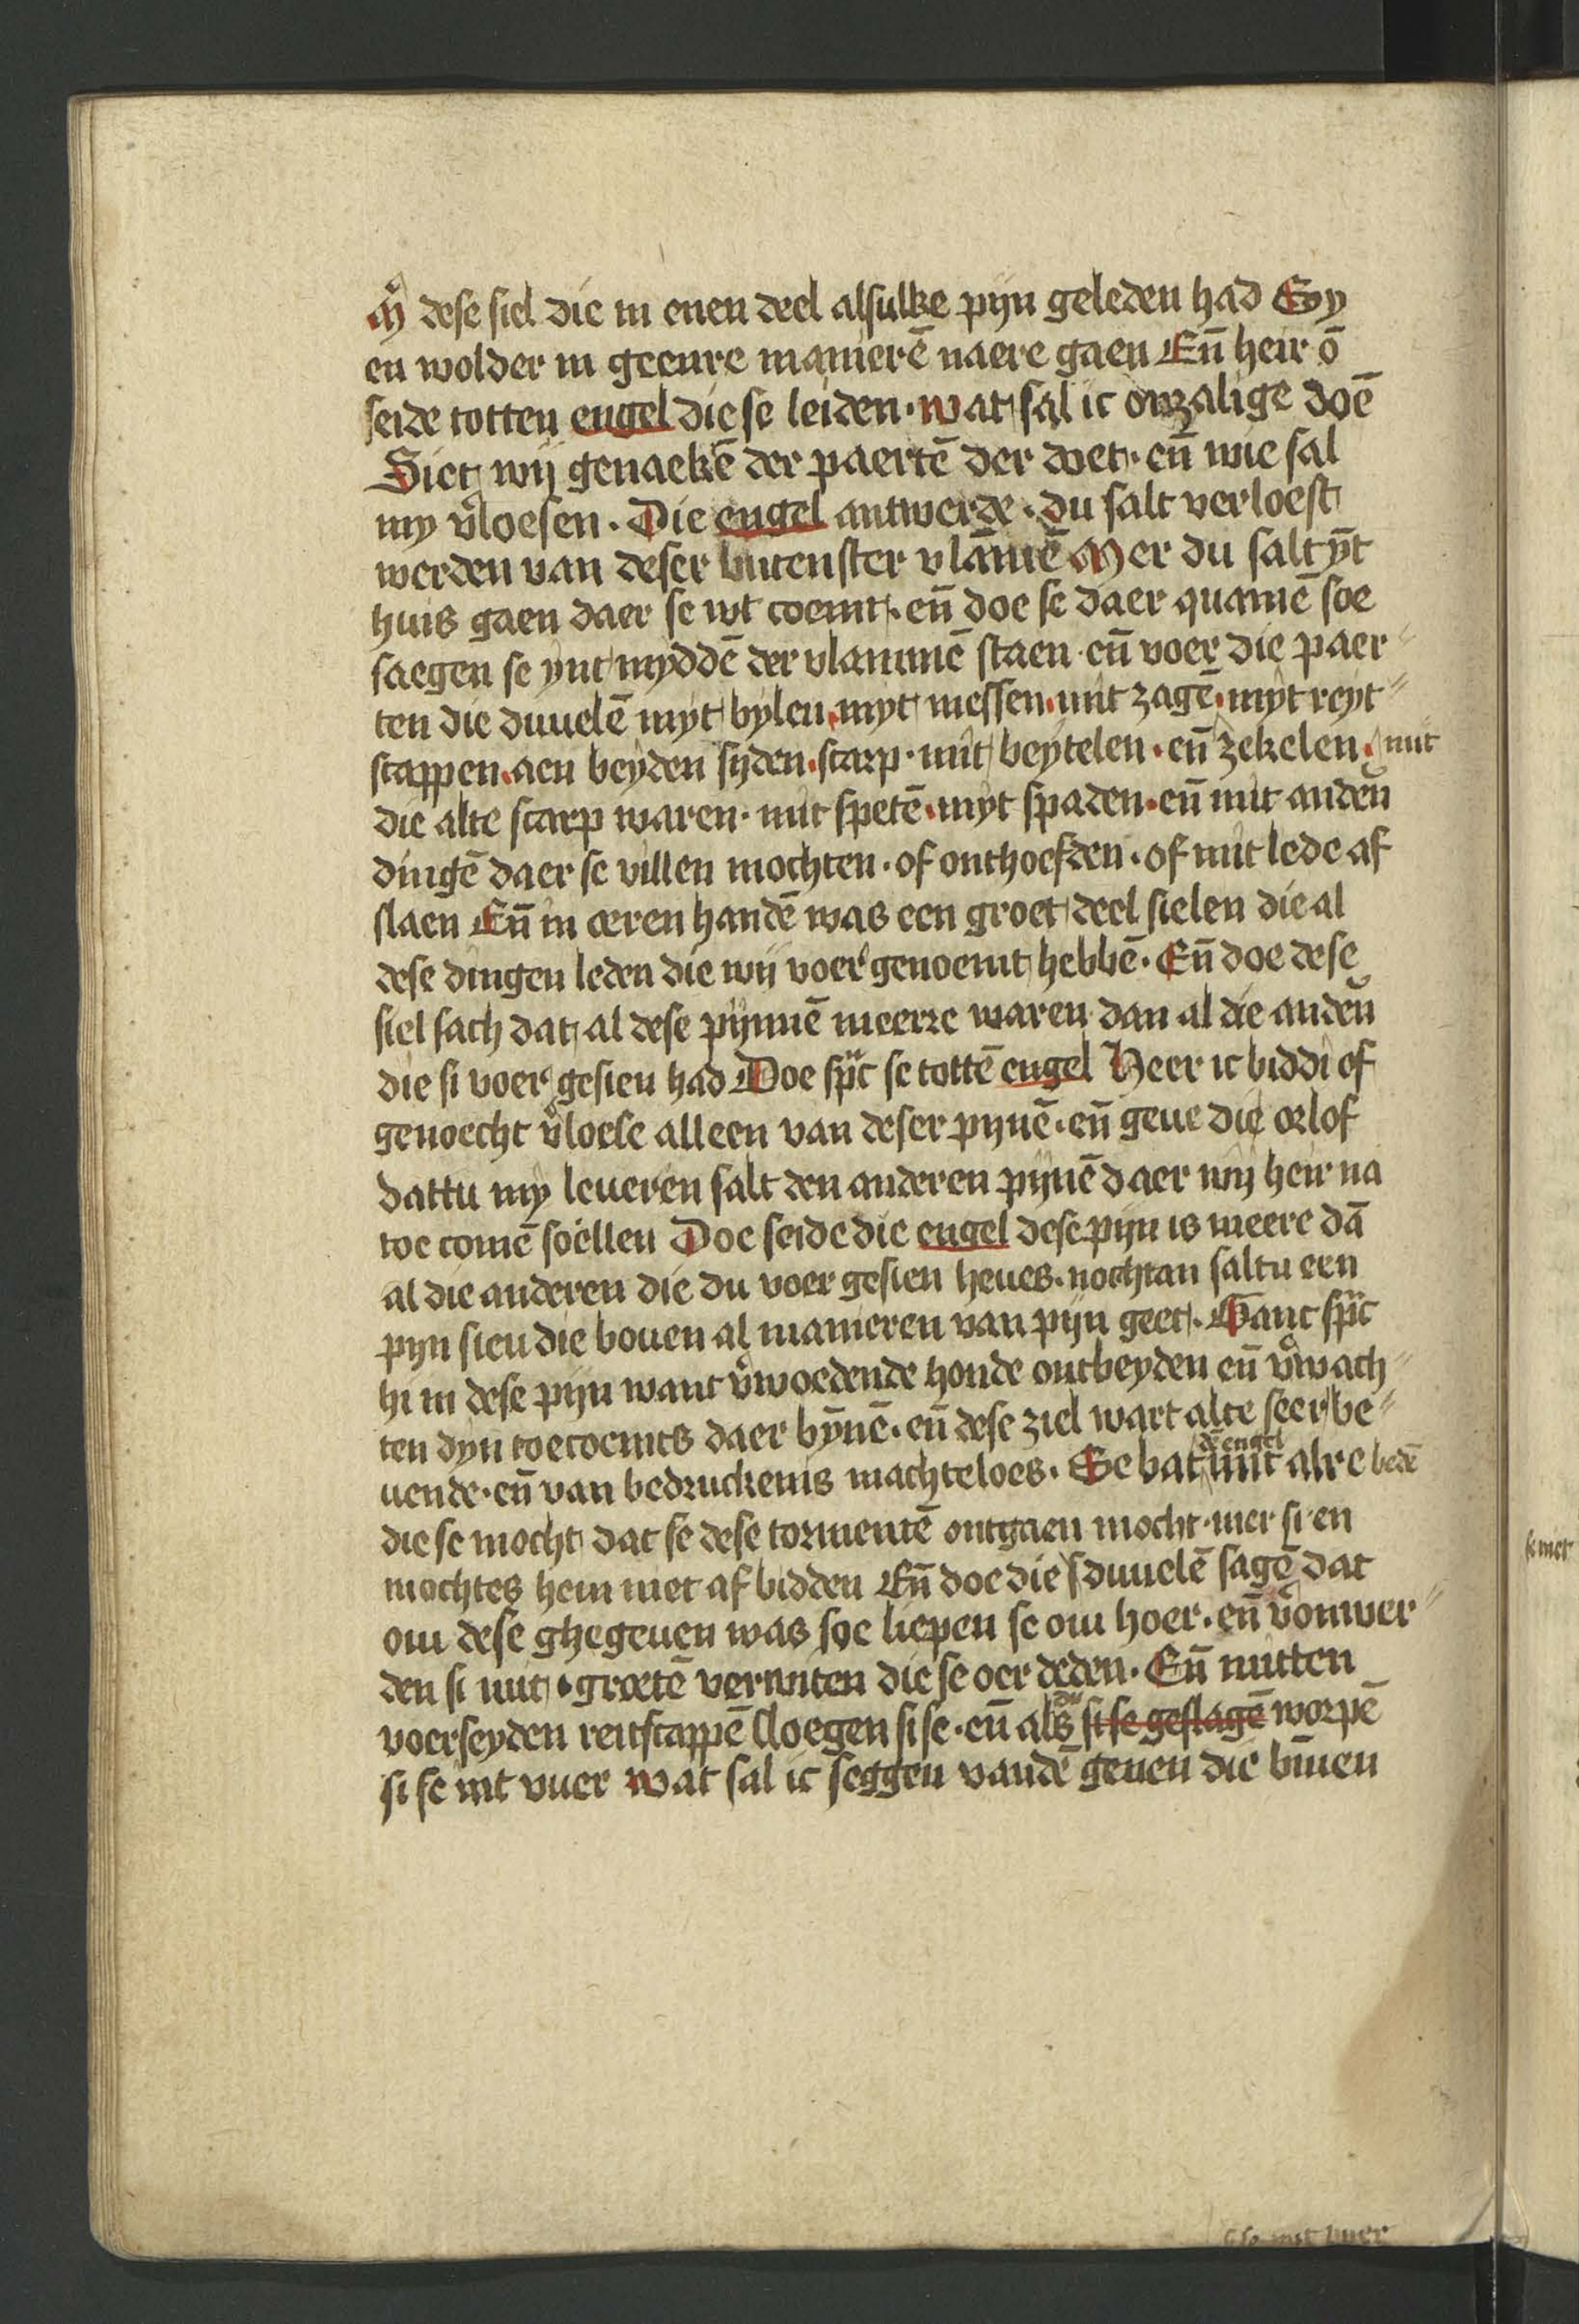 M̊ dese siel die in enen deel alsulke pijn geleden had Ey
en wolder in geenre manierē naere gaen Eñ heir ō
seide totten engel die se leiden · wat sal ic onzalige doē
Siet wij genaekē der paertē der doet · eñ wie sal
my v̊loesen · Die engel antwerde · du salt verloest
werden van deser butenster vlāmē Mer du salt ȳt
huis gaen daer se wt coemt · eñ doe se daer quamē soe
saegen se ynt myddē der vlammē staen · eñ voer die paer〃
ten die duuelē myt bylen · myt messen · mit zagē · myt reyt〃
scappen · aen beyden syden · scarp · mit beytelen · eñ zekelen · mit
die alte scarp waren · mit spetē · myt spaden · eñ mit andeñ
dingē daer se villen mochten · of onthoefden · of mit lede af
slaen Eñ in oeren handē was een groet deel sielen die al
dese dingen leden die wij voer genoemt hebbē · Eñ doe dese
siel sach dat al dese pijnnē meerre waren dan al die andeñ
die si voer gesien had Doe sprc se tottē engel Heer ic biddi of
genoecht v̊loese alleen van deser pynē · eñ geue die orlof
dattu my leueren salt den anderen pijnē daer wij heir na
toe comē soellen Doe seide die engel dese pijn is meere dā
al die anderen die du voer gesien heues · nochtan saltu een
pyn sien die bouen al manieren van pijn geet · Ganc sprc
hi in dese pijn want v̊woedende honde ontbeyden eñ v̊wach〃
ten dyn toecoemts daer bȳnē · eñ dese ziel wart alte seer be〃
uende · eñ van bedruckenis machteloes · Se bat dē engel mit alre bedē
die se mocht dat se dese tormentē ontgaen mocht · mer si en
mochtes hem niet af bidden Eñ doe die duuelē sagē dat
om dese ghegeuen was soe liepen se om hoer · eñ v̊onwer〃
den si mit · groetē verwiten die se oer deden · Eñ mitten
voerseyden reitscappē sloegen si se · eñ als si se geslagē worpē
si se int vuer wat sal ic seggen vandē geuen die binnen
si se int vuer